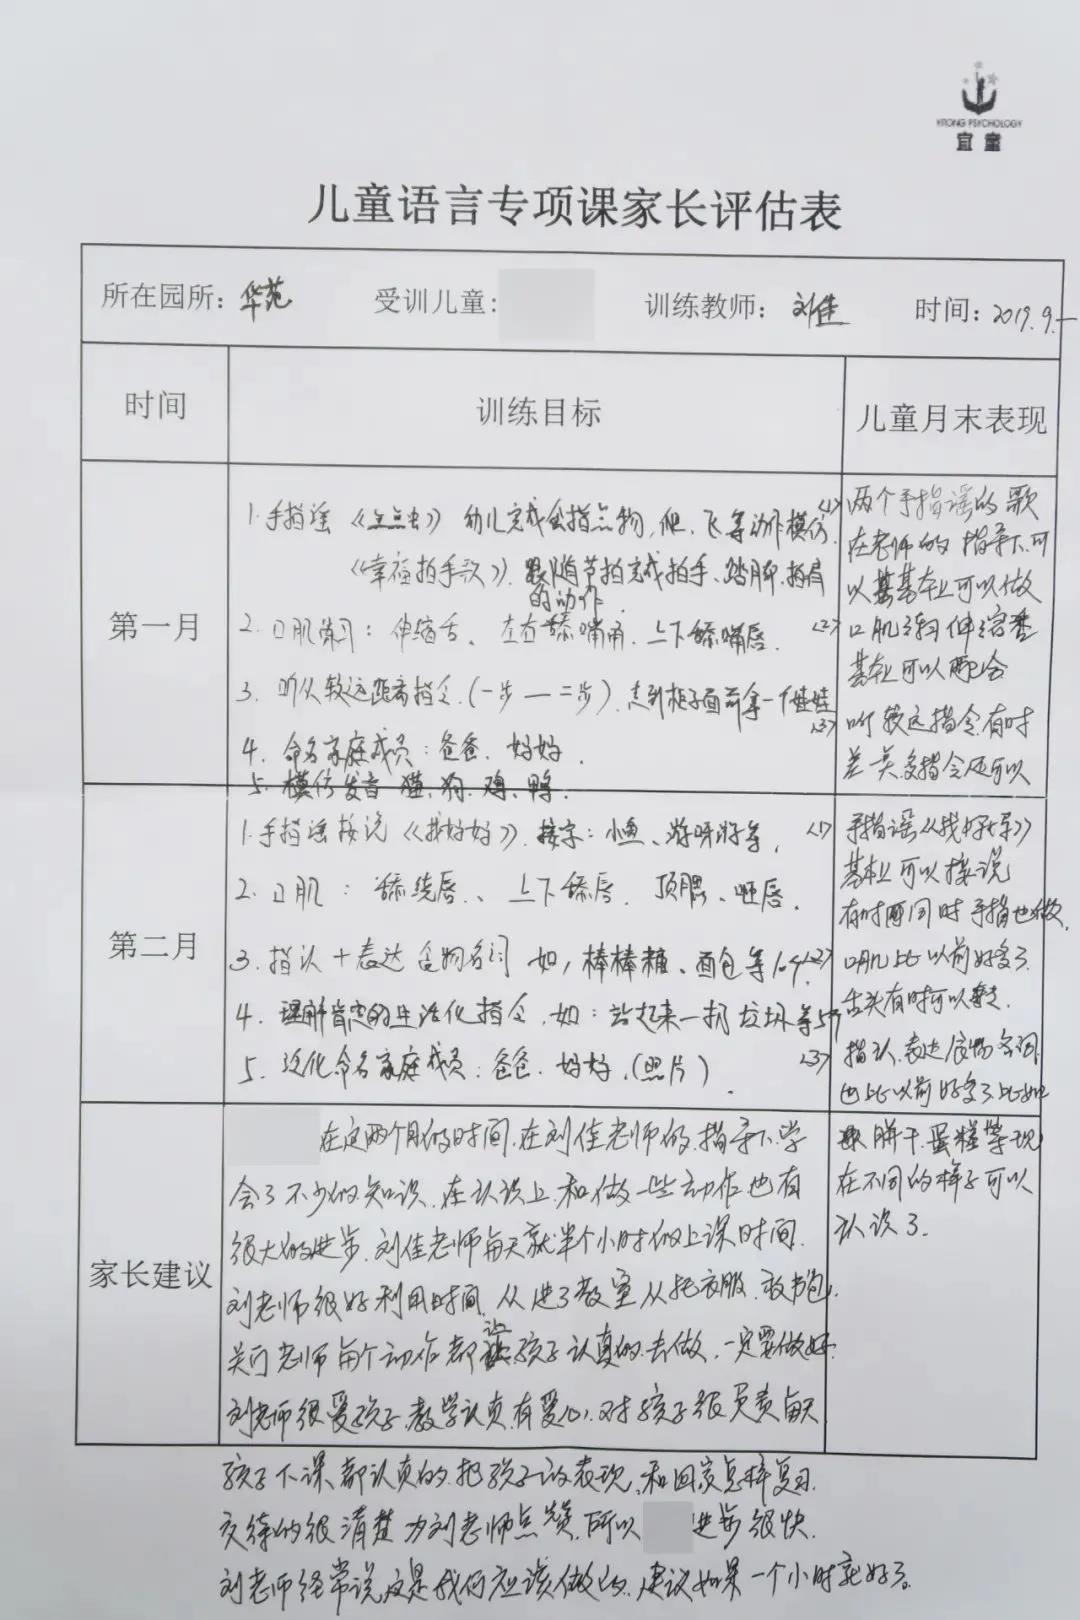 YITONG PSYCHOLOGY
宜童
儿童语言专项课家长评估表
所在园所：华苑 受训儿童： 训练教师：刘佳 时间：2019.9.
时间 训练目标 儿童月末表现
第一月
1.手指谣《点点虫》幼儿完成食指点物，爬、飞等动作模仿.
《幸福拍手歌》，跟随节拍完成拍手、踏脚、拍肩
的动作.
2.口肌练习：伸缩舌、左右舔嘴角、上下舔嘴唇.
3.听从较远距离指令.(一步—二步).走到柜子面前拿一个娃娃
4.命名家庭成员：爸爸、奶奶.
5.模仿发音 猫、狗、鸡、鸭.
<1>两个手指谣的歌
在老师的指导下.可
以基本上可以做
<2>口肌练习伸缩舌
基本上可以配合
<3>听较远指令有时
差 类多指令还可以
第二月
1.手指谣接说《找好好》.接字：小鱼、游呀游等.
2.口肌：舔绕唇、上下舔唇、顶腮、咂唇.
3.指认+表达食物名词 如，棒棒糖、面包等10个
4.理解肯定的生活化指令.如：站起来—扔垃圾等5个
5.泛化命名家庭成员：爸爸、奶奶.(照片).
<1>手指谣《找好好》
基本上可以接说
有时同时手指也做.
<2>口肌比以前好多了.
舌头有时可以
<3>指认.表达食物名词
也比以前好多了比如
饼干.蛋糕等现
在不同的样子可以
认识了.
家长建议
在这两个月的时间.在刘佳老师的指导下.学
会了不少的知识.在认识上.和做一些动作也有
很大的进步.刘佳老师每天就半个小时的上课时间.
刘老师很好利用时间.从进了教室从托衣服.放书包.
关门老师每个动作都让孩子认真的去做.一定要做好.
刘老师很爱孩子.教学认真有爱心.对孩子很负责每天
孩子下课都认真的.把孩子的表现.和回家怎样复习.
交待的很清楚 为刘老师点赞.所以 进步很快.
刘老师经常说这是我们应该做的.建议如果一个小时就好了。